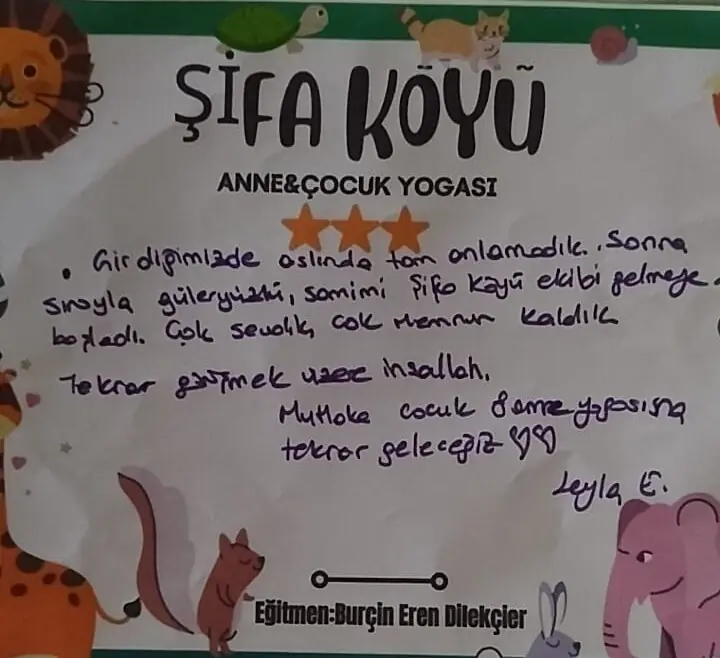 ŞİFA KÖYÜ
ANNE&ÇOCUK YOGASI
• Girdiğimizde aslında tam anlamadık. Sonra
sırayla güleryüzlü, samimi Şifa Köyü ekibi gelmeye
başladı. Çok sevdik, çok memnun kaldık
Tekrar görüşmek üzere inşallah.
Mutlaka çocuk & anne yogasına
tekrar geleceğiz ♡♡
Leyla E.
Eğitmen:Burçin Eren Dilekçier